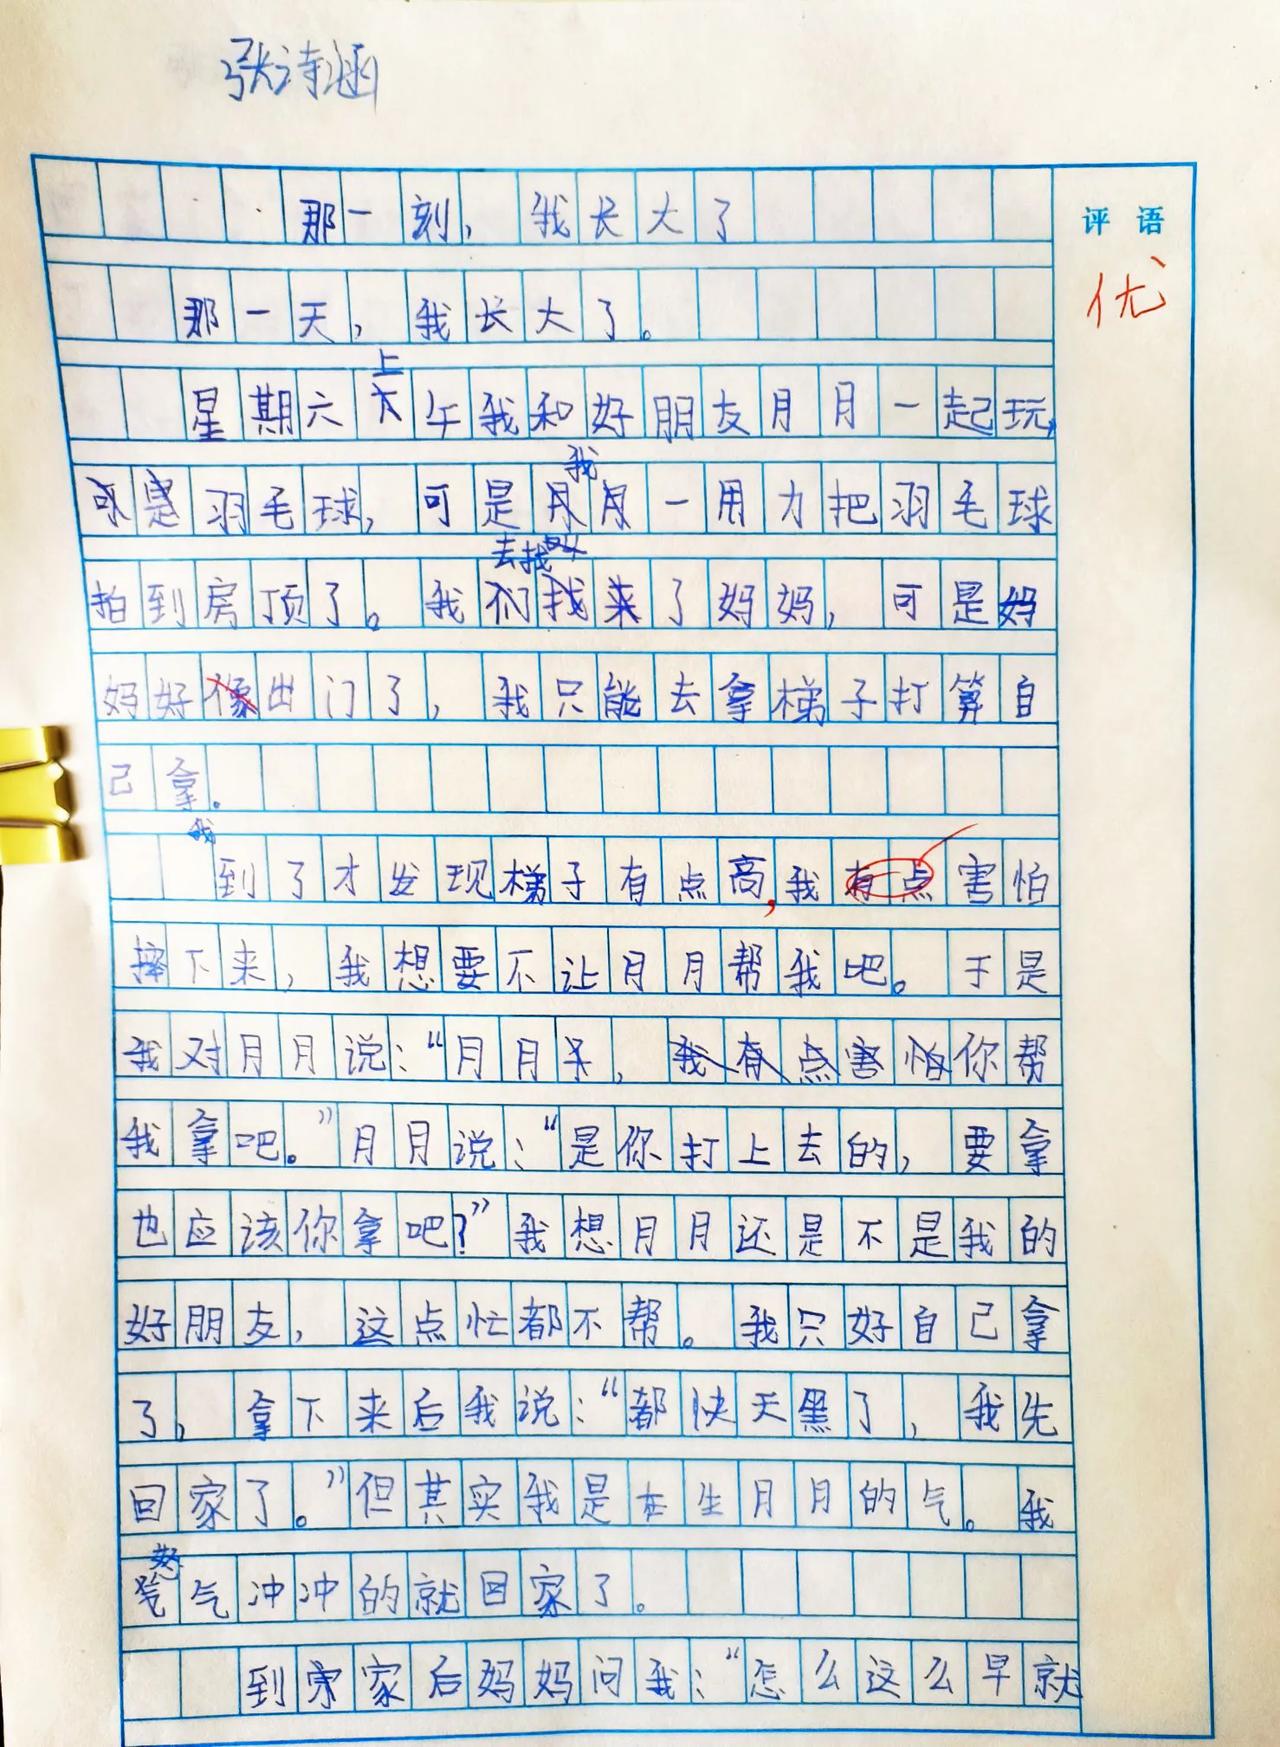 张诗涵
那一刻，我长大了
评语
优
那一天，我长大了。
上
星期六午我和好朋友月月一起玩，
我
羽毛球，可是一用力把羽毛球
去找
拍到房顶了。我了妈妈，可是妈
妈好像出门了，我只能去拿梯子打算自
己拿。
我
到了才发现梯子有点高，我有点害怕
摔下来，我想要不让月月帮我吧。于是
我对月月说：“月月，我有点害怕你帮
我拿吧。”月月说：“是你打上去的，要拿
也应该你拿吧？”我想月月还是不是我的
好朋友，这点忙都不帮。我只好自己拿
了，拿下来后我说：“都快天黑了，我先
回家了。”但其实我是在生月月的气。我
怒
气冲冲的就回家了。
到家后妈妈问我：“怎么这么早就